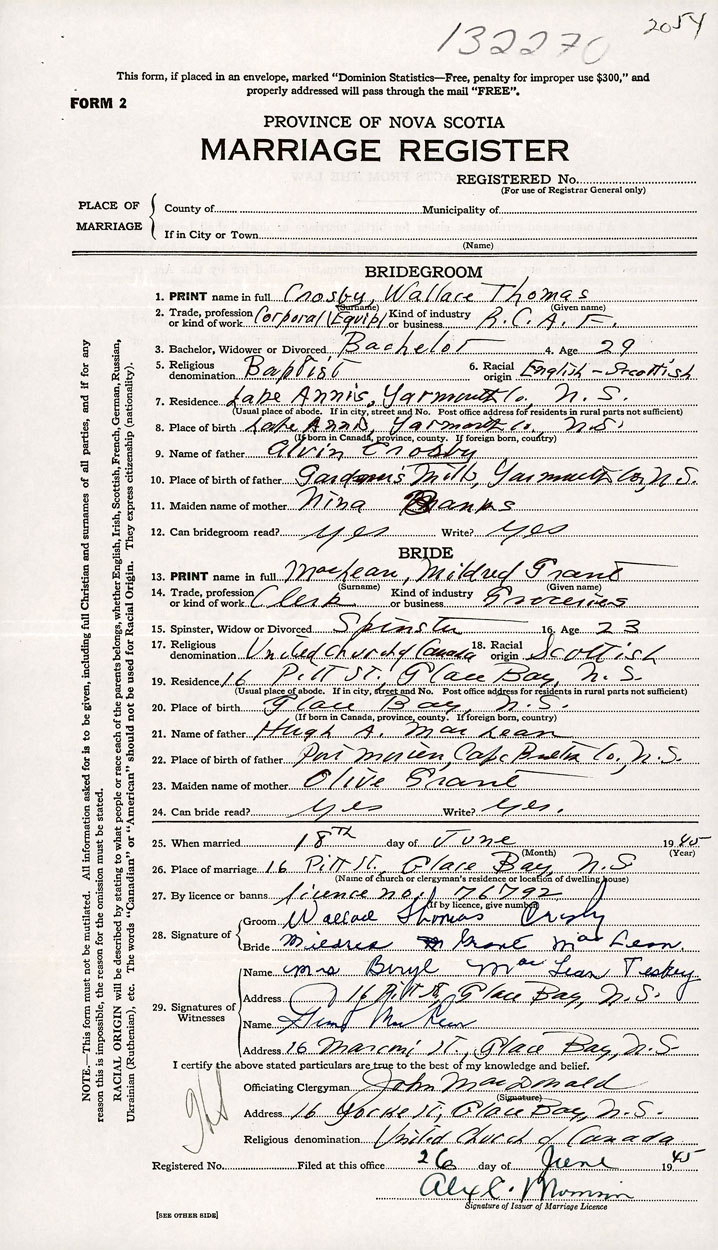 132270
2054
This form, if placed in an envelope, marked "Dominion Statistics—Free, penalty for improper use $300," and
properly addressed will pass through the mail "FREE".
FORM 2
PROVINCE OF NOVA SCOTIA
MARRIAGE REGISTER
REGISTERED No.
(For use of Registrar General only)
PLACE OF MARRIAGE
County of Municipality of
If in City or Town
(Name)
BRIDEGROOM
1. PRINT name in full Crosby, Wallace Thomas
(Surname) (Given name)
2. Trade, profession or kind of work Corporal (Equip) Kind of industry or business R.C.A.F.
3. Bachelor, Widower or Divorced Bachelor 4. Age 29
5. Religious denomination Baptist 6. Racial origin English-Scottish
7. Residence Lake Annis, Yarmouth Co., N.S.
(Usual place of abode. If in city, street and No. Post office address for residents in rural parts not sufficient)
8. Place of birth Lake Annis, Yarmouth Co., N.S.
(If born in Canada, province, county. If foreign born, country)
9. Name of father Alvin Crosby
10. Place of birth of father Gardner's Mills, Yarmouth Co., N.S.
11. Maiden name of mother Nina Banks
12. Can bridegroom read? yes Write? yes
BRIDE
13. PRINT name in full MacLean, Mildred Grant
(Surname) (Given name)
14. Trade, profession or kind of work Clerk Kind of industry or business Groceries
15. Spinster, Widow or Divorced Spinster 16. Age 23
17. Religious denomination United Church of Canada 18. Racial origin Scottish
19. Residence 16 Pitt St., Glace Bay, N.S.
(Usual place of abode. If in city, street and No. Post office address for residents in rural parts not sufficient)
20. Place of birth Glace Bay, N.S.
(If born in Canada, province, county. If foreign born, country)
21. Name of father Hugh A. MacLean
22. Place of birth of father Port Morien, Cape Breton Co., N.S.
23. Maiden name of mother Olive Grant
24. Can bride read? yes Write? yes.
25. When married 18th day of June 1945
(Month) (Year)
26. Place of marriage 16 Pitt St., Glace Bay, N.S
(Name of church or clergyman's residence or location of dwelling house)
27. By licence or banns licence no. 176792
(If by licence, give number)
28. Signature of
Groom Wallace Thomas Crosby
Bride Mildred Grant MacLean
29. Signatures of Witnesses
Name Mrs Beryl MacLean Teskey
Address 16 Pitt St, Glace Bay, N.S.
Name
Address 16 Marconi St., Glace Bay, N.S.
I certify the above stated particulars are true to the best of my knowledge and belief.
Officiating Clergyman John MacDonald
(Signature)
Address 16 Yorke St, Glace Bay, N.S.
Religious denomination United Church of Canada
Registered No. Filed at this office 26 day of June 1945
Signature of Issuer of Marriage Licence
[SEE OTHER SIDE]
NOTE.—This form must not be mutilated. All information asked for is to be given, including full Christian and surnames of all parties, and if for any
reason this is impossible, the reason for the omission must be stated.
RACIAL ORIGIN will be described by stating to what people or race each of the parents belongs, whether English, Irish, Scottish, French, German, Russian,
Ukrainian (Ruthenian), etc. The words "Canadian" or "American" should not be used for Racial Origin. They express citizenship (nationality).